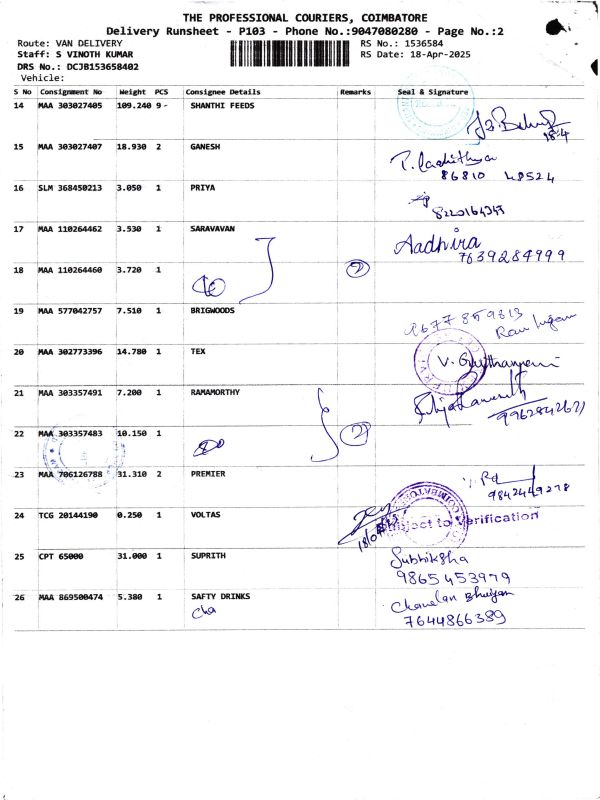 THE PROFESSIONAL COURIERS, COIMBATORE
Delivery Runsheet - P103 - Phone No.:9047080280 - Page No.:2
Route: VAN DELIVERY RS No.: 1536584
Staff: S VINOTH KUMAR RS Date: 18-Apr-2025
DRS No.: DCJB153658402
Vehicle:
S No Consignment No Weight PCS Consignee Details Remarks Seal & Signature
14 MAA 303027405 109.240 9 - SHANTHI FEEDS
18.4
15 MAA 303027407 18.930 2 GANESH
86810 48524
16 SLM 368450213 3.050 1 PRIYA
8220164343
17 MAA 110264462 3.530 1 SARAVAVAN Aadhira
7639284999
18 MAA 110264460 3.720 1 2
19 MAA 577042757 7.510 1 BRIGWOODS
20 MAA 302773396 14.780 1 TEX
21 MAA 303357491 7.200 1 RAMAMORTHY
22 MAA 303357483 10.150 1 2
23 MAA 706126788 31.310 2 PREMIER
9842449278
24 TCG 20144190 0.250 1 VOLTAS
Subject to Verification
25 CPT 65000 31.000 1 SUPRITH Subhiksha
9865453979
26 MAA 869500474 5.380 1 SAFTY DRINKS
Cha
7644866389